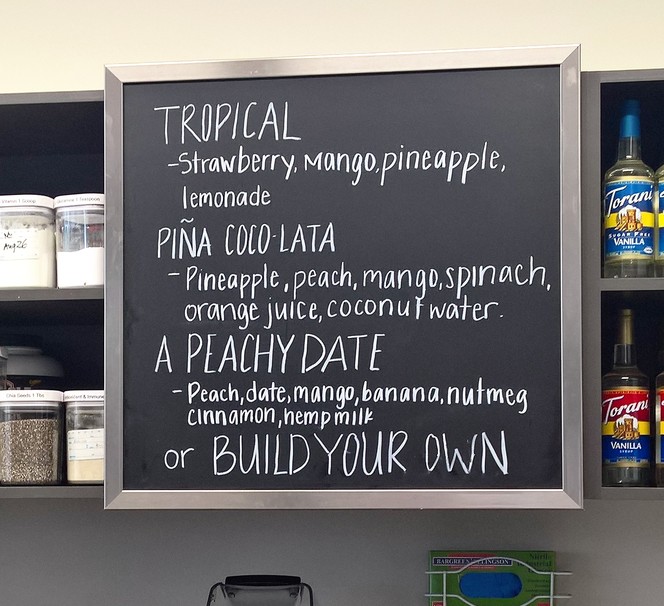 TROPICAL
-Strawberry, Mango, pineapple,
lemonade
PIÑA COCO-LATA
- Pineapple, peach, mango, spinach,
orange juice, coconut water.
A PEACHY DATE
- Peach, date, mango, banana, nutmeg
cinnamon, hemp milk
or BUILD YOUR OWN
Torani
SUGAR FREE
VANILLA
SYRUP
Torani
VANILLA
SYRUP
Chia Seeds 1 Tbs
BARGREEN ELLINGSON